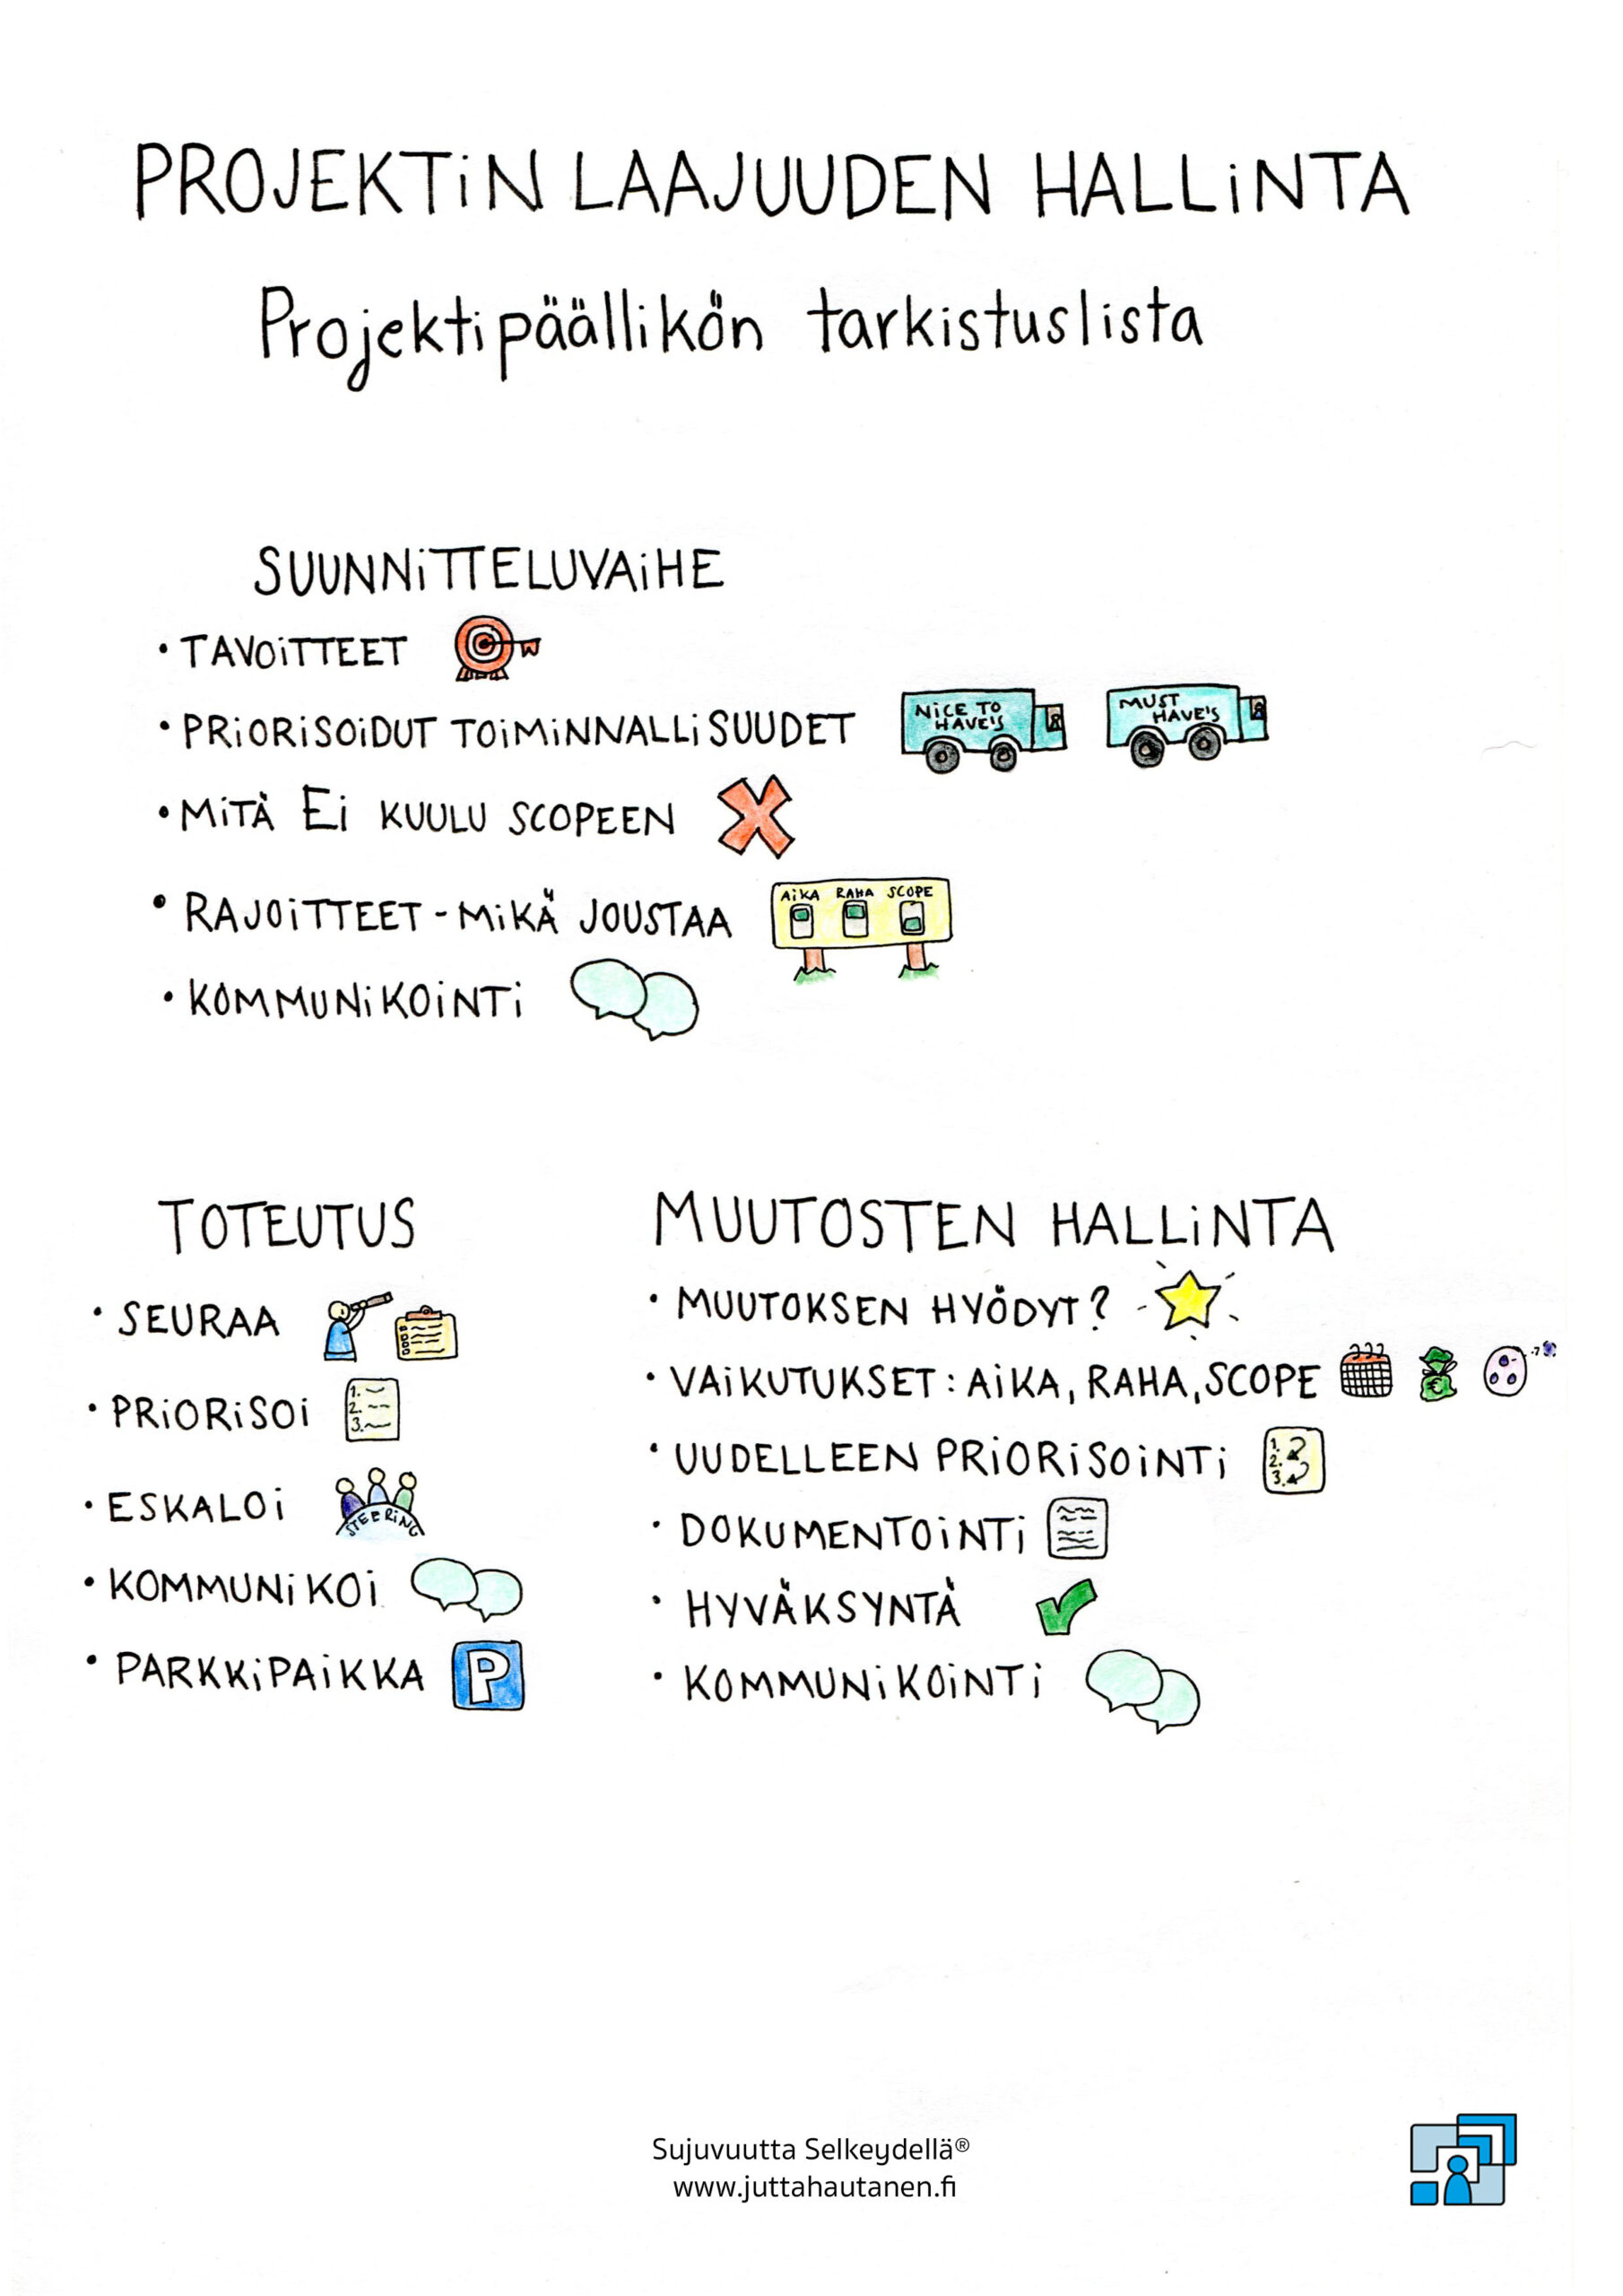 PROJEKTiN LAAJUUDEN HALLiNTA
Projektipäällikön tarkistuslista
SUUNNiTTELUVAiHE
• TAVOiTTEET
• PRiORiSOiDUT TOiMiNNALLiSUUDET
NiCE TO HAVE'S
MUST HAVE'S
• MiTÄ Ei KUULU SCOPEEN
• RAJOiTTEET - MiKÄ JOUSTAA
AiKA RAHA SCOPE
• KOMMUNiKOiNTi
TOTEUTUS
• SEURAA
• PRiORiSOi
1.
2.
3.
• ESKALOi
STEERiNG
• KOMMUNiKOi
• PARKKiPAiKKA
P
MUUTOSTEN HALLiNTA
• MUUTOKSEN HYÖDYT?
• VAiKUTUKSET: AiKA, RAHA, SCOPE
€
• UUDELLEEN PRiORiSOiNTi
1.
2.
3.
• DOKUMENTOiNTi
• HYVÄKSYNTÄ
• KOMMUNiKOiNTi
Sujuvuutta Selkeydellä®
www.juttahautanen.fi